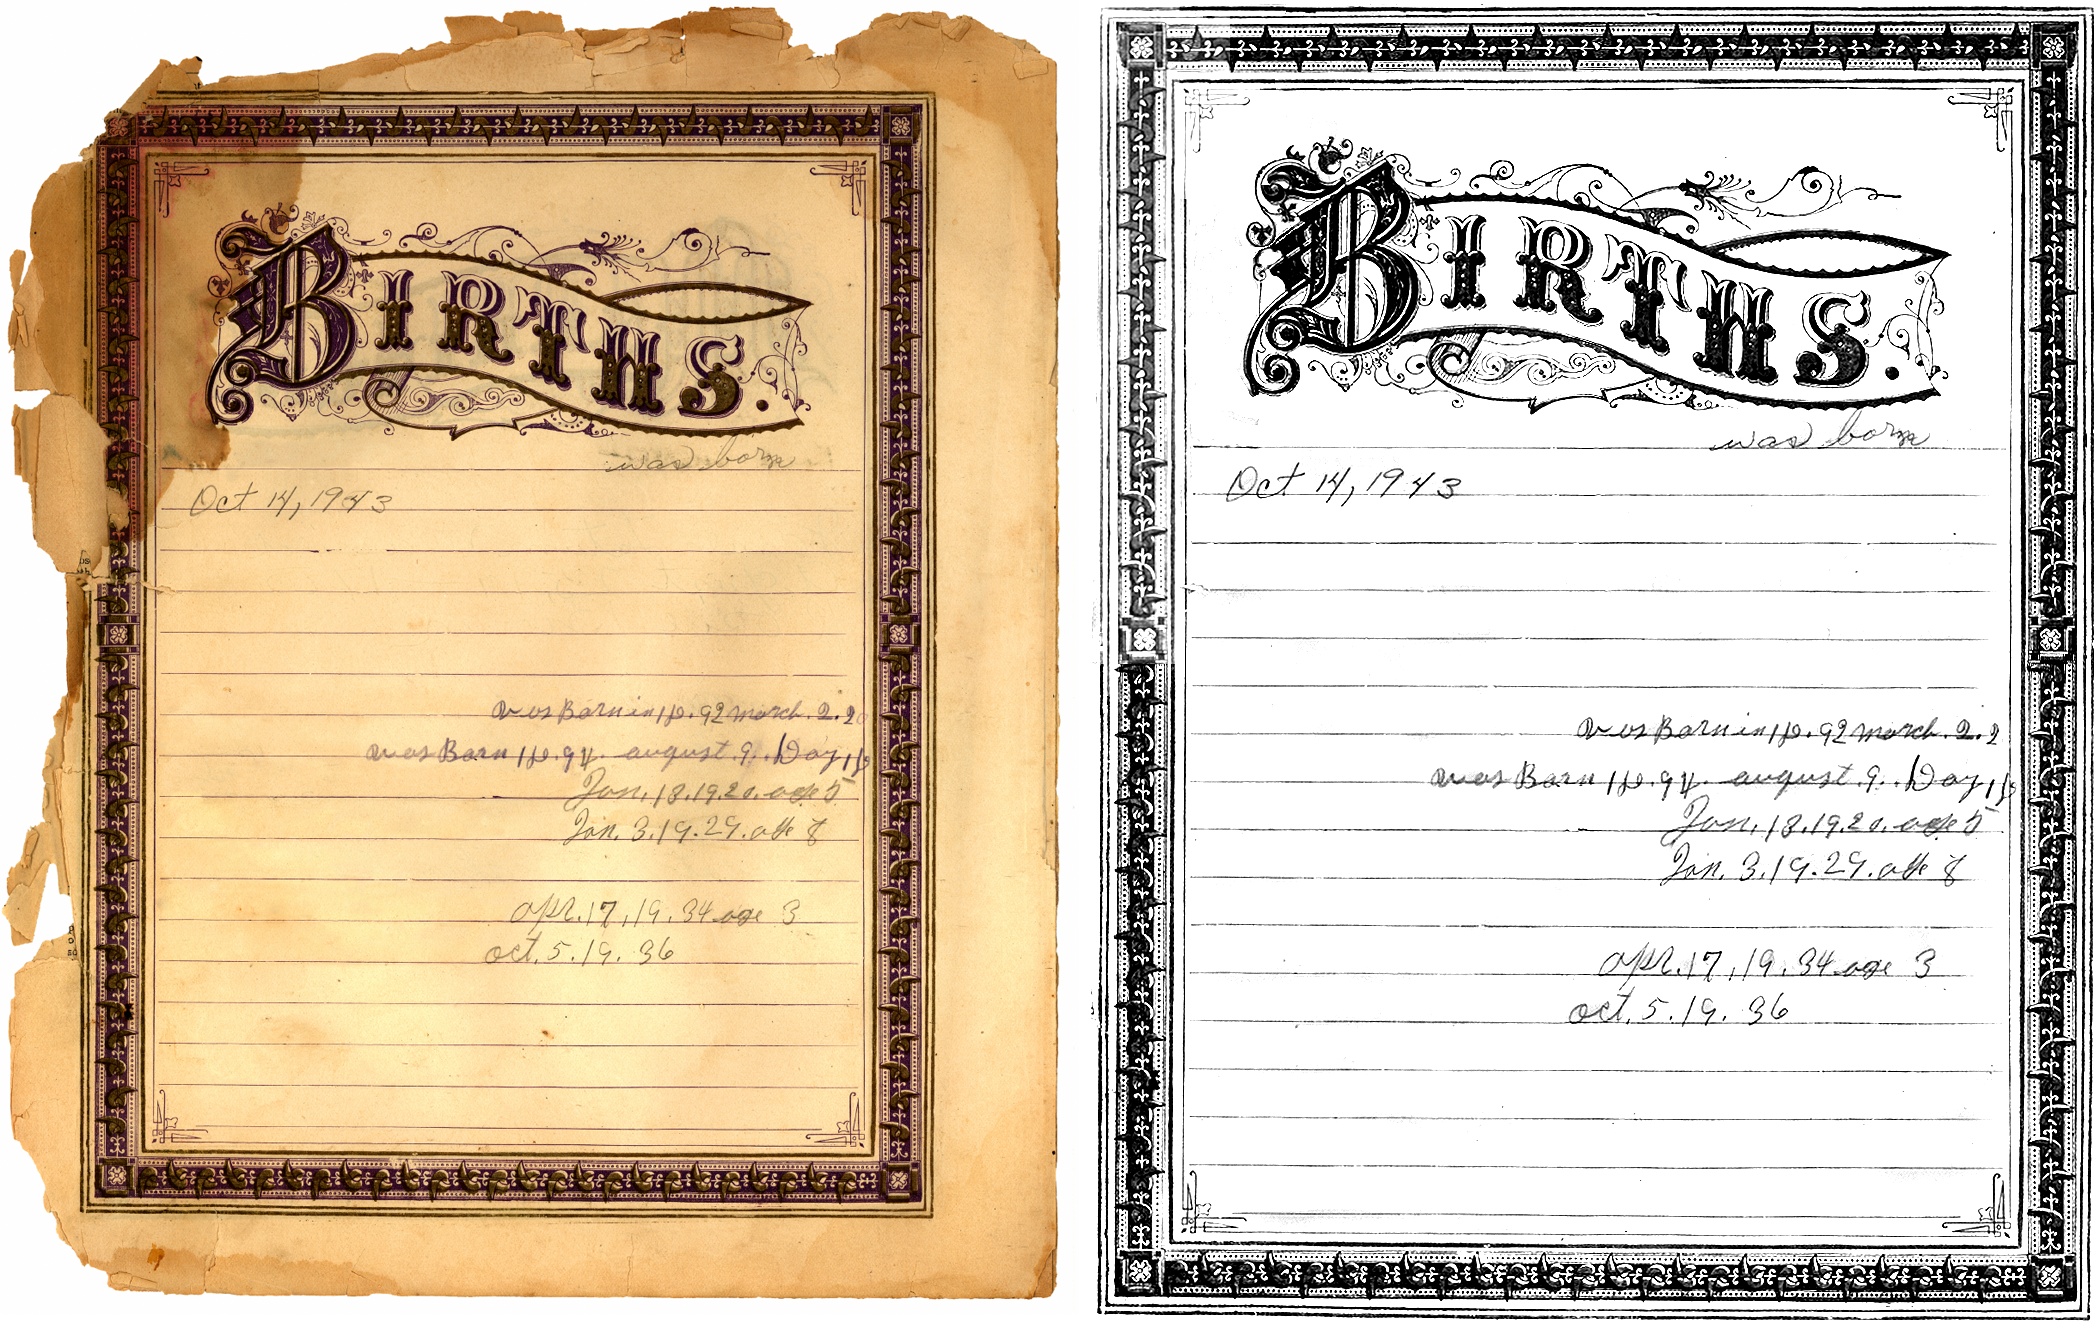 BIRTHS.
was born
Oct 14, 1943
was Born in 18.92 march. 2.2
was Born 18.94. august. 9. Day 18
Jan. 18.19.20. age 5
Jan. 3.19.29. age 8
apr. 17, 19.34 age 3
oct. 5.19.36
BIRTHS.
was born
Oct 14, 1943
was Born in 18.92 march. 2.2
was Born 18.94. august. 9. Day 18
Jan. 18.19.20. age 5
Jan. 3.19.29. age 8
apr. 17, 19.34 age 3
oct. 5.19.36